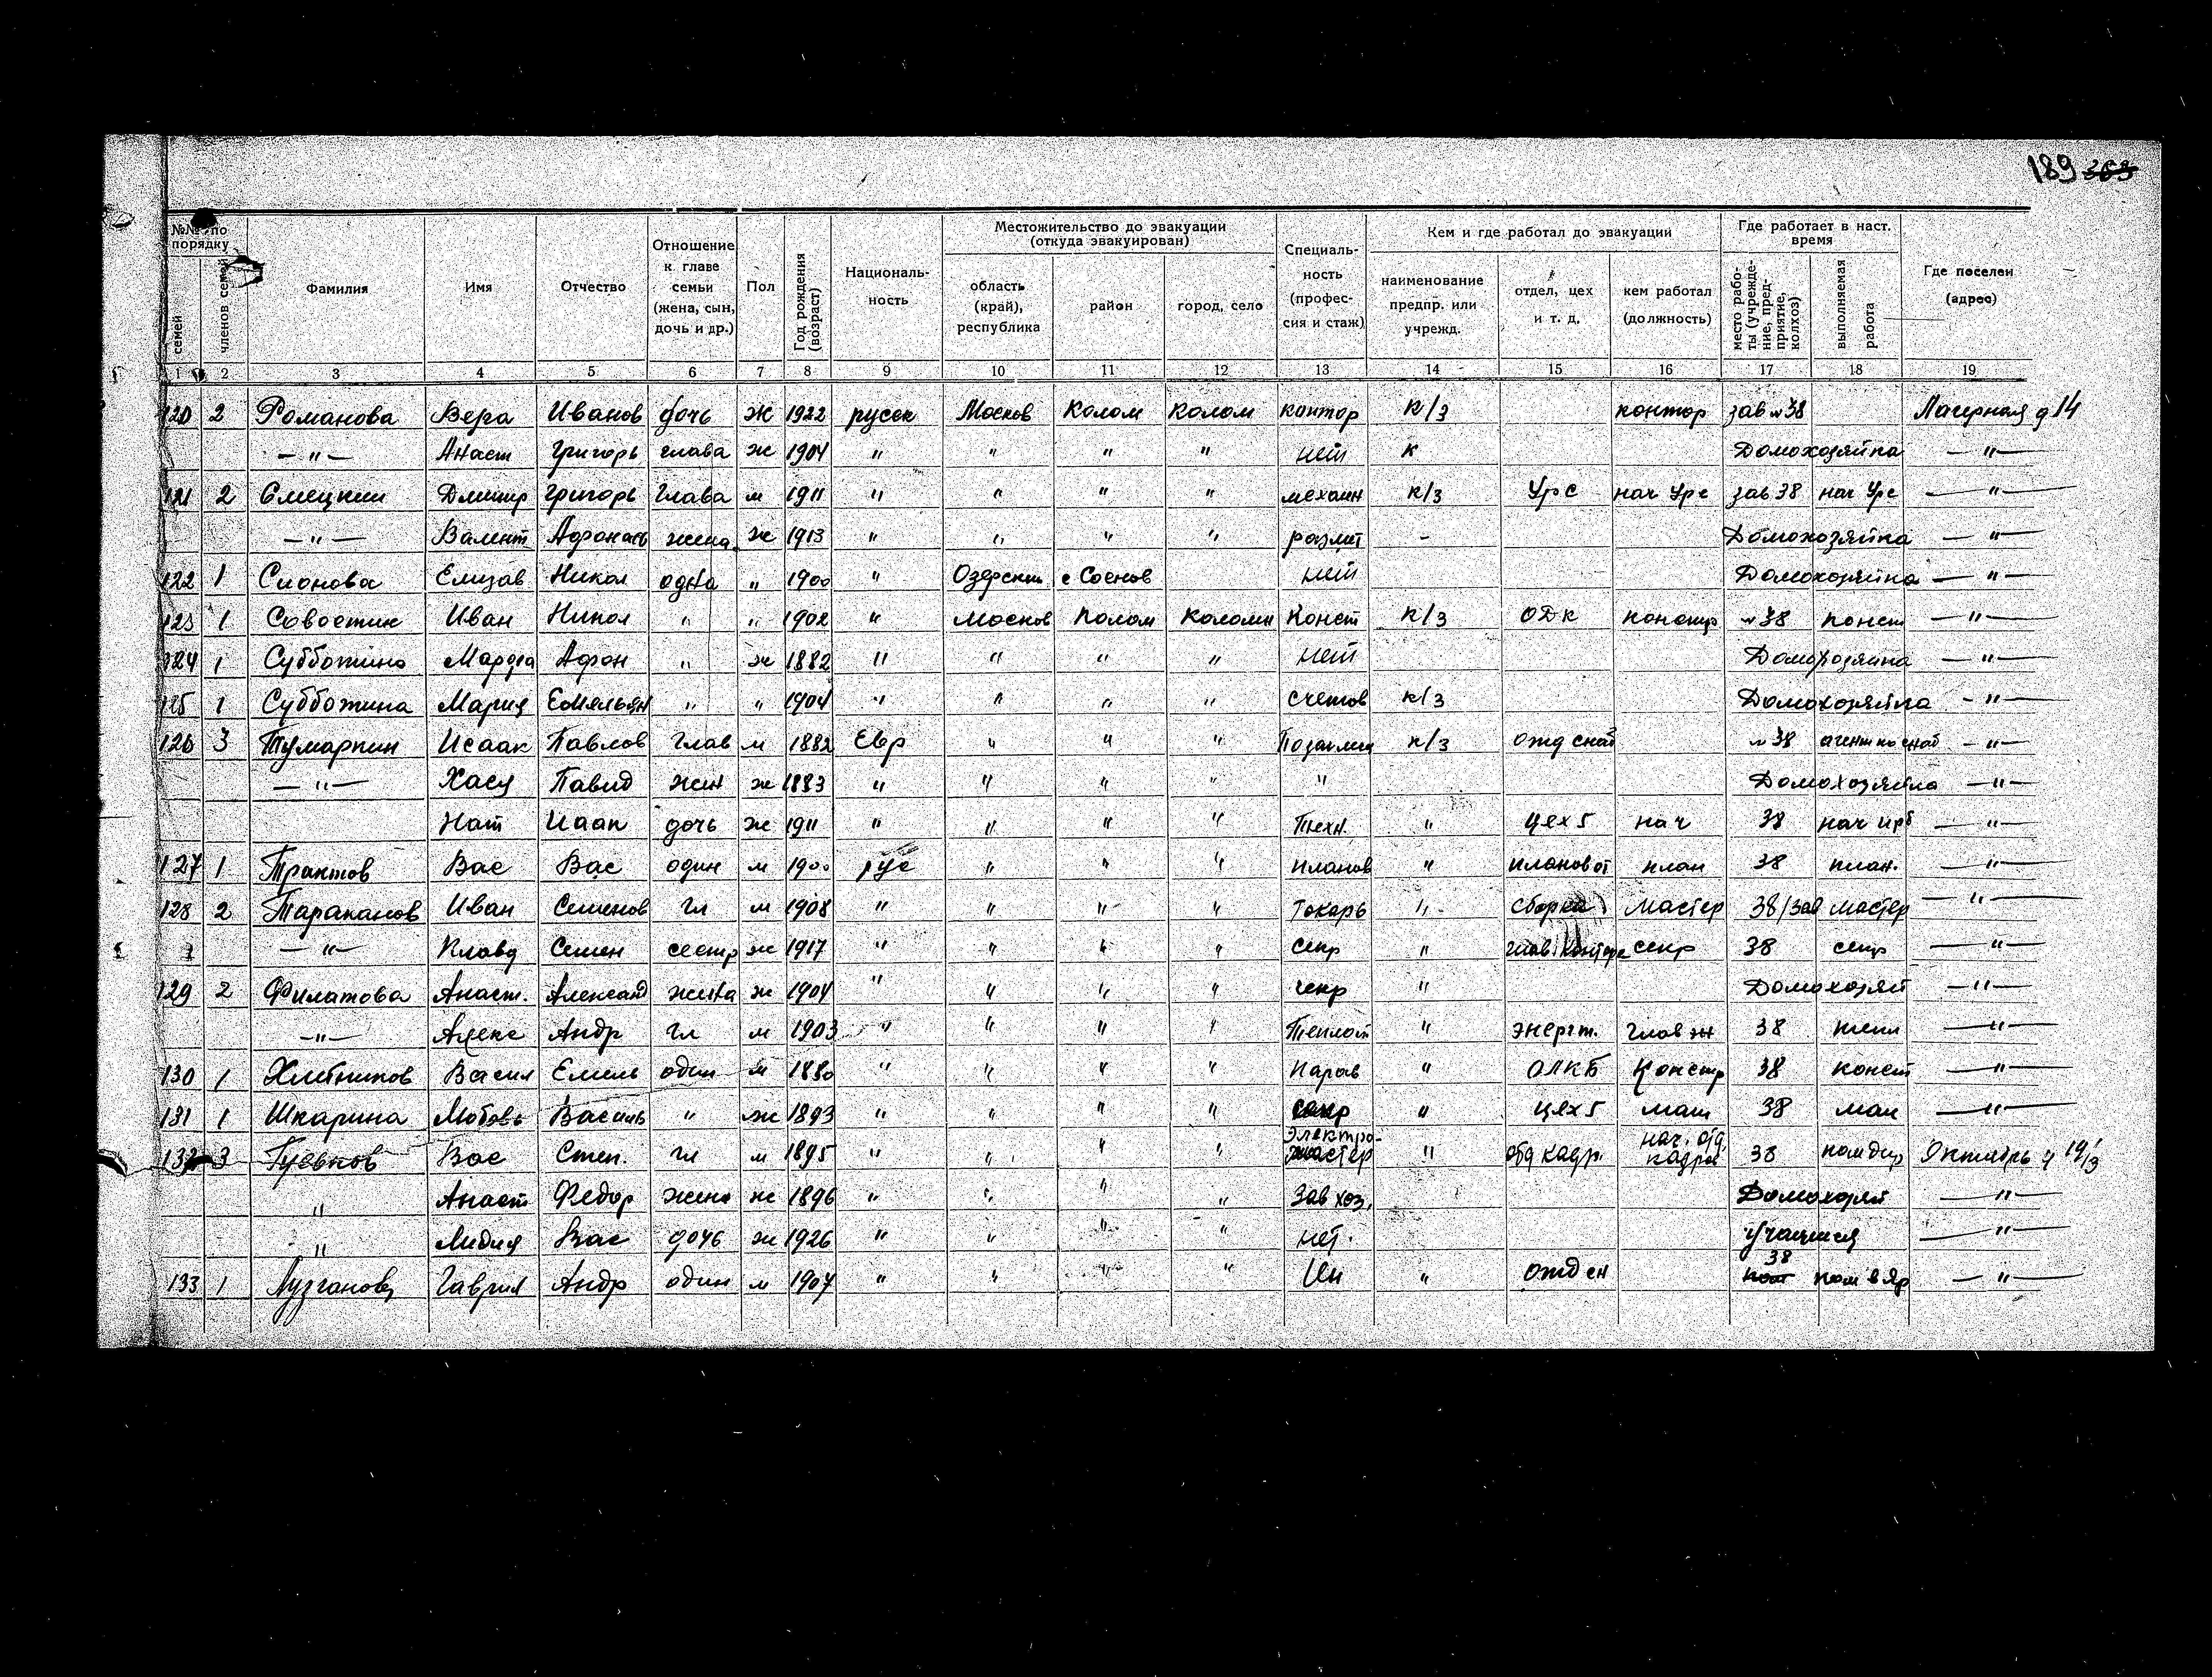 189 369
№№ по порядку
семей
членов семей
Фамилия
Имя
Отчество
Отношение к главе семьи (жена, сын, дочь и др.)
Пол
Год рождения (возраст)
Националь-ность
Местожительство до эвакуации (откуда эвакуирован)
область (край), республика
район
город, село
Специаль-ность (профес-сия и стаж)
Кем и где работал до эвакуации
наименование предпр. или учрежд.
отдел, цех и т. д.
кем работал (должность)
Где работает в наст. время
место рабо-ты (учрежде-ние, пред-приятие, колхоз)
выполняемая работа
Где поселен (адрес)
1 2 3 4 5 6 7 8 9 10 11 12 13 14 15 16 17 18 19
120 2 Романова Вера Иванов дочь ж 1922 русск Москов Колом Колом контор к/з контор зав №38 Лагерная д 14
—"— Анаст Григорь глава ж 1904 " " " " нет к Домохозяйка —"—
121 2 Смецкий Дмитр Григорь Глава м 1911 " " " " механ к/з Урс нач Урс зав 38 нач Урс —"—
—"— Валент Афонась жена ж 1913 " " " " - Домохозяйка —"—
122 1 Сионова Елизав Никол одна " 1900 " Озерский с Соснов нет Домохозяйка —"—
123 1 Совостин Иван Никол " " 1902 " Москов Колом Коломн Конст к/з ОДК констр №38 конст —"—
124 1 Субботина Марфа Афон " ж 1882 " " " " нет Домохозяйка —"—
125 1 Субботина Мария Емельян " " 1904 " " " " счетов к/з Домохозяйка —"—
126 3 Тумаркин Исаак Павлов глав м 1882 Евр " " " к/з отд снаб №38 агент по снаб —"—
—"— Хася Павид жен ж 1883 " " " " " Домохозяйка —"—
Нат Исаак дочь ж 1911 " " " " Техн. " цех 5 нач 38 —"—
127 1 Трактов Вас Вас один м 1900 рус " " " планов " плановот план 38 план. —"—
128 2 Тараканов Иван Семенов гл м 1908 " " " " токарь " сборка мастер 38/зав мастер —"—
—"— Клавд Семен сестр ж 1917 " " " " секр " глав. контора секр 38 секр —"—
129 2 Филатова Анаст. Александ жена ж 1904 " " " " секр " Домохозяй —"—
—"— Алекс Андр гл м 1903 " " " " Теплот " энергт. глав эн 38 тепл —"—
130 1 Хлебников Васил Емель один м 1880 " " " " " ОЛКБ Констр 38 конст —"—
131 1 Шкарина Любовь Василь " ж 1893 " " " " секр " цех 5 маш 38 маш —"—
132 3 Гуевков Вас Степ. гл м 1895 " " " " электро-мастер " отд кадр. нач. отд. кадров 38 пом дир Октябрь 4 19/3
" Анаст Федор жена ж 1896 " " " " Зав хоз. Домохозяй —"—
" Лидия Вас дочь ж 1926 " " " " нет. Учащийся —"—
133 1 Лузганов Гаврил Андр один м 1907 " " " " " 38 —"—